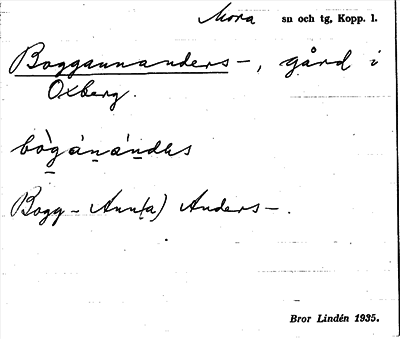 Mora sn och tg, Kopp. l.
Boggannanders-, gård i
Oxberg.
bòg ánándes
Bogg- Ann(a) Anders-.
Bror Lindén 1935.